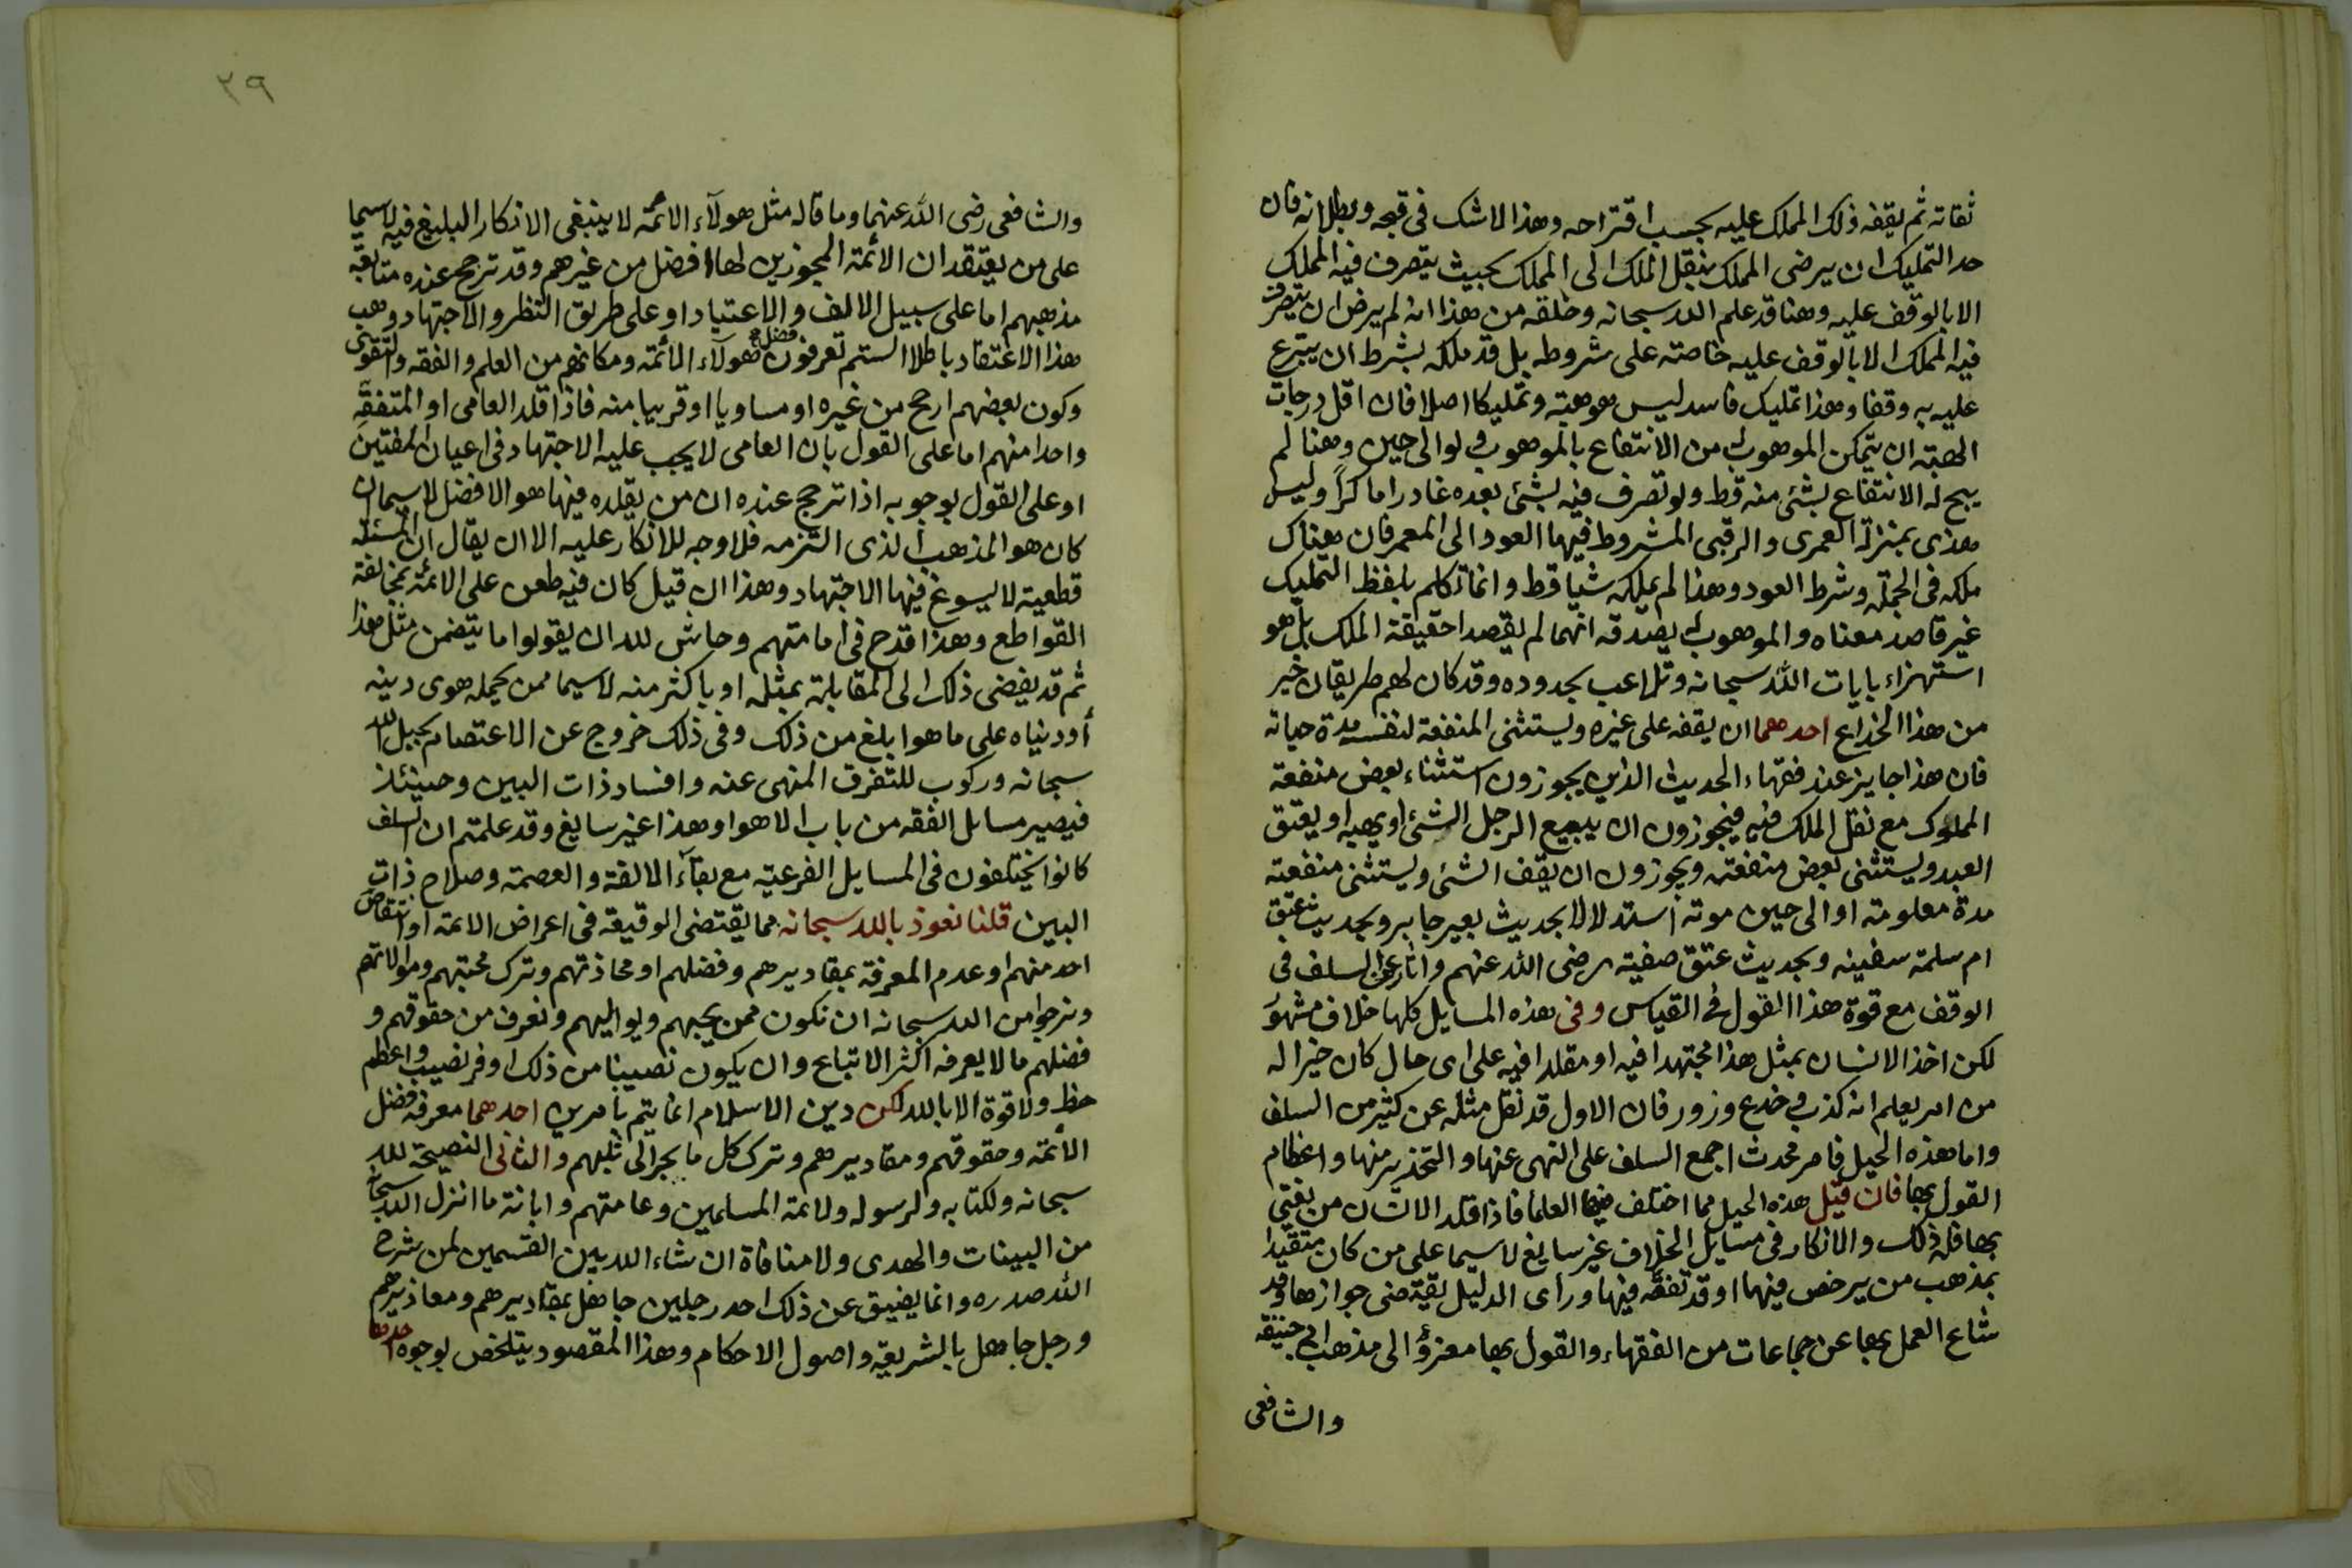 ثقاته ثم يقفه ذلك المملك عليه بحسب اقتراحه وهذا لا شك في قبحه وبطلانه فان
حد التمليك ان يرضى المملك بنقل الملك الى المملك بحيث يتصرف فيه المملك
الا بالوقف عليه وهنا قد علم الله سبحانه وخلقه من هذا انه لم يرض ان يتصرف
فيه المملك الا بالوقف عليه خاصته على شروطه بل قد ملكه بشرط ان يتبرع
عليه به وقفا وهذا تمليك فاسد ليس هو هبته وتمليكا اصلا فان اقل درجات
الهبته ان يتمكن الموهوب له من الانتفاع بالموهوب ولو الى حين وهنا لم
يبح له الانتفاع بشئ منه قط ولو تصرف فيه بشئ بعده غادرا ماكرا وليس
هذى بمنزلة العمرى والرقبى المشروط فيهما العود الى المعمر فان هناك
ملكه في الجملة وشرط العود وهذا لم يملكه شيا قط وانما تكلم بلفظ التمليك
غير قاصد معناه والموهوب له يصدقه انهما لم يقصدا حقيقة الملك بل هو
استهزاء بايات الله سبحانه وتلاعب بحدوده وقد كان لهم طريقان خير
من هذا الخداع احدهما ان يقفه على غيره ويستثنى المنفعة لنفسه مدة حياته
فان هذا جايز عند فقهاء الحديث الذين يجوزون استثناء بعض منفعة
المملوك مع نقل الملك فيه فيجوزون ان يبيع الرجل الشئ او يهبه او يعتق
العبد ويستثنى بعض منفعته ويجوزون ان يقف الشئ ويستثنى منفعته
مدة معلومته او الى حين موته استدلالا بحديث بعير جابر وبحديث عتق
ام سلمة سفينه وبحديث عتق صفيته رضى الله عنهم واثار عن السلف في
الوقف مع قوة هذا القول في القياس وفي هذه المسايل كلها خلاف مشهور
لكن اخذ الانسان بمثل هذا مجتهدا فيه او مقلدا فيه على اى حال كان خير اله
من امر يعلم انه كذب وخدع وزور فان الاول قد نقل مثله عن كثير من السلف
واما هذه الحيل فامر محدث اجمع السلف على النهى عنها والتحذير منها واعظام
القول بها فان قيل هذه الحيل مما اختلف فيها العلما فاذا قلد الانسان من يفتى
بها فله ذلك والانكار في مسايل الخلاف غير سايغ لا سيما على من كان متقيدا
بمذهب من يرخص فيها او قد تفقه فيها وراى الدليل يقتضى جوازها وقد
شاع العمل بها عن جماعات من الفقهاء والقول بها معزؤ الى مذهب ابى حنيفه
والشافعى
٣٩
والشافعى رضى الله عنهما وما قاله مثل هولاء الائمه لا ينبغى الانكار البليغ فيه لا سيما
على من يعتقد ان الائمة المجوزين لها افضل من غيرهم وقد ترجح عنده متابعة
مذهبهم اما على سبيل الالف والاعتياد او على طريق النظر والاجتهاد وهب
هذا الاعتقاد باطلا الستم تعرفون فضل هولاء الائمته ومكانهم من العلم والفقه والتقوى
وكون بعضهم ارجح من غيره او مساويا او قريبا منه فاذا قلد العامى او المتفقه
واحدا منهم اما على القول بان العامى لا يجب عليه الاجتهاد في اعيان المفتين
او على القول بوجوبه اذا ترجح عنده ان من يقلده فيها هو الافضل لا سيما ان
كان هو المذهب الذى التزمه فلا وجه للانكار عليه الا ان يقال ان المسئلة
قطعيته لا يسوغ فيها الاجتهاد وهذا ان قيل كان فيه طعن على الائمة بمخالفة
القواطع وهذا قدح في امامتهم وحاش لله ان يقولوا ما يتضمن مثل هذا
ثم قد يفضى ذلك الى المقابلة بمثله او باكثر منه لا سيما ممن يحمله هوى دينه
أو دنياه على ما هو ابلغ من ذلك وفي ذلك خروج عن الاعتصام بحبل الله
سبحانه وركوب للتفرق المنهى عنه وافساد ذات البين وحينئذ
فيصير مسايل الفقه من باب الاهوا وهذا غير سايغ وقد علمتم ان السلف
كانوا يختلفون في المسايل الفرعيه مع بقاء الالفة والعصمة وصلاح ذات
البين قلنا نعوذ بالله سبحانه مما يقتضى الوقيعه في اعراض الائمة او انتقاص
احد منهم او عدم المعرفة بمقاديرهم وفضلهم او محادتهم وترك محبتهم وموالاتهم
ونرجوا من الله سبحانه ان نكون ممن يحبهم ويواليهم ونعرف من حقوقهم و
فضلهم ما لا يعرفه اكثر الاتباع وان يكون نصيبنا من ذلك اوفر نصيب واعظم
حظ ولا قوة الا بالله لكن دين الاسلام انما يتم بامرين احدهما معرفة فضل
الائمة وحقوقهم ومقاديرهم وترك كل ما يجر الى ثلبهم والثانى النصيحة لله
سبحانه ولكتابه ولرسوله ولائمة المسلمين وعامتهم وابانة ما انزل الله سبحانه
من البينات والهدى ولا منافاة ان شاء الله بين القسمين لمن شرح
الله صدره وانما يضيق عن ذلك احد رجلين جاهل بمقاديرهم ومعاذيرهم
ورجل جاهل بالشريعة واصول الاحكام وهذا المقصود يتلخص بوجوه احدها